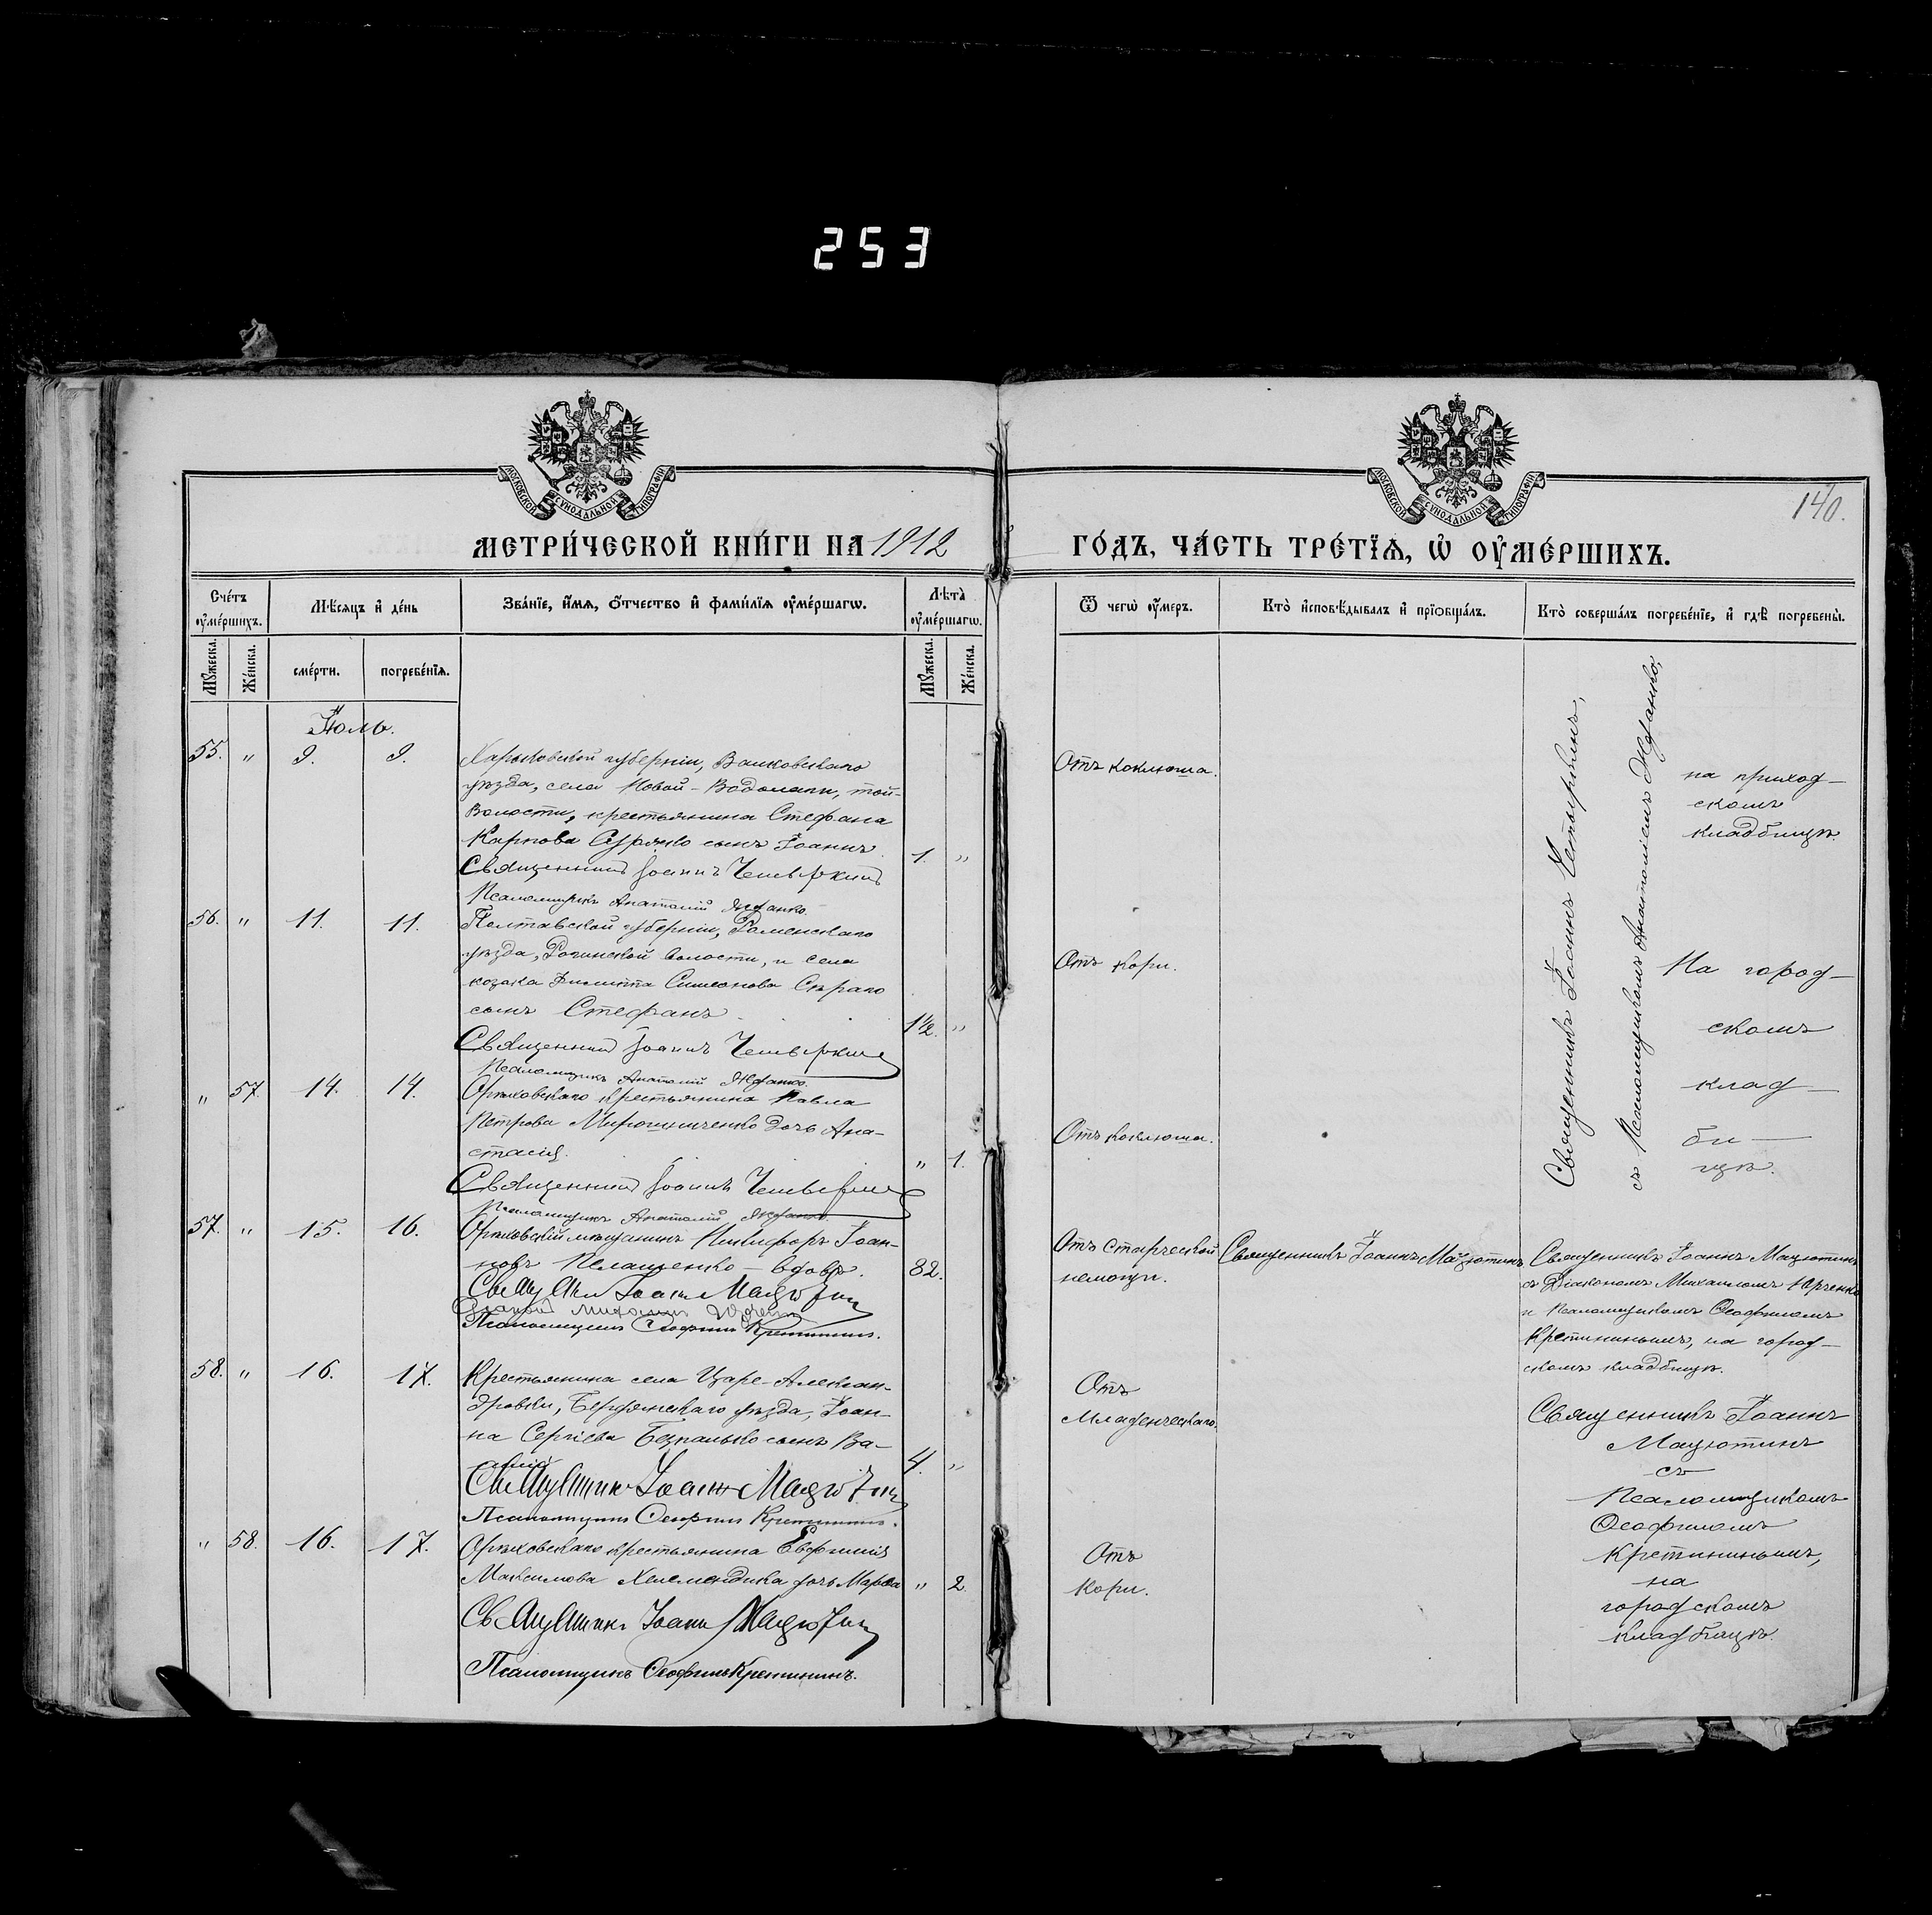 253
МОСКОВСКОЙ СѴНОДАЛЬНОЙ ТИПОГРАФІИ
МОСКОВСКОЙ СѴНОДАЛЬНОЙ ТИПОГРАФІИ
140.
МЕТРИ́ЧЕСКОЙ КНИ́ГИ НА 1912 ГО́ДЪ, ЧА́СТЬ ТРЕ́ТЇѦ, Ѡ҆ ОУ҆МЕ́РШИХЪ.
Сче́тъ оу҆ме́ршихъ.
Мѣ́сяцъ и҆ де́нь
Зва́нїе, и҆́мѧ, ѻ҆́тчество и҆ фами́лїѧ оу҆ме́ршагѡ.
Лѣта̀ оу҆ме́ршагѡ.
Ѿ чегѡ̀ оу҆́меръ.
Кто̀ и҆сповѣ́дывалъ и҆ прїобща́лъ.
Кто̀ соверша́лъ погребе́нїе, и҆ гдѣ̀ погребены̀.
Мꙋ́жеска.
Же́нска.
сме́рти.
погребе́нїѧ.
Мꙋ́жеска.
Же́нска.
Іюль.
55. " 9. 9.
Харьковской губерніи, Валковскаго
уѣзда, села Новой-Водолаги, той-
волости, крестьянина Стефана
Карпова сынъ Іоаннъ. 1. "
Священникъ Іоаннъ Четыркинъ
Псаломщикъ Анатолій Жданко.
Отъ коклюша.
Священникъ Іоаннъ Четыркинъ,
съ Псаломщикомъ Анатоліемъ Жданко,
на приход-
скомъ
кладбищѣ.
56. " 11. 11.
Полтавской губерніи, Роменскаго
уѣзда, волости, и села
козака Филиппа Симеонова Сѣраго
сынъ Стефанъ 1½. "
Священникъ Іоаннъ Четыркинъ
Псаломщикъ Анатолій Жданко.
Отъ кори.
На город-
скомъ
клад-
би-
щѣ.
" 57. 14. 14.
Орѣховскаго крестьянина Павла
Петрова Мирошниченко дочь Ана-
стасія. " 1.
Священникъ Іоаннъ Четыркинъ
Псаломщикъ Анатолій Жданко.
Отъ коклюша.
57. " 15. 16.
Орѣховскій мѣщанинъ Никифоръ Іоан-
новъ Пелашенко - вдовъ. 82.
Священникъ Іоаннъ Мацютинъ
Діаконъ Михаилъ Юрченко
Псаломщикъ Ѳеофилъ Кретининъ.
Отъ старческой
немощи.
Священникъ Іоаннъ Мацютинъ
Священникъ Іоаннъ Мацютинъ
съ Діакономъ Михаиломъ Юрченко
и Псаломщикомъ Ѳеофиломъ
Кретининымъ, на город-
скомъ кладбищѣ.
58. " 16. 17.
Крестьянина села Царе-Алексан-
дровки, Бердянскаго уѣзда, Іоан-
на Сергіева Безпалько сынъ Ва-
силій 4. "
Священникъ Іоаннъ Мацютинъ
Псаломщикъ Ѳеофилъ Кретининъ.
Отъ
Младенческаго.
Священникъ Іоаннъ
Мацютинъ
съ
Псаломщикомъ
Ѳеофиломъ
Кретининымъ,
на
городскомъ
кладбищѣ.
" 58. 16. 17.
Орѣховскаго крестьянина Евфимія
Максимова Хелемендика дочь Марѳа " 2.
Священникъ Іоаннъ Мацютинъ
Псаломщикъ Ѳеофилъ Кретининъ.
Отъ
Кори.